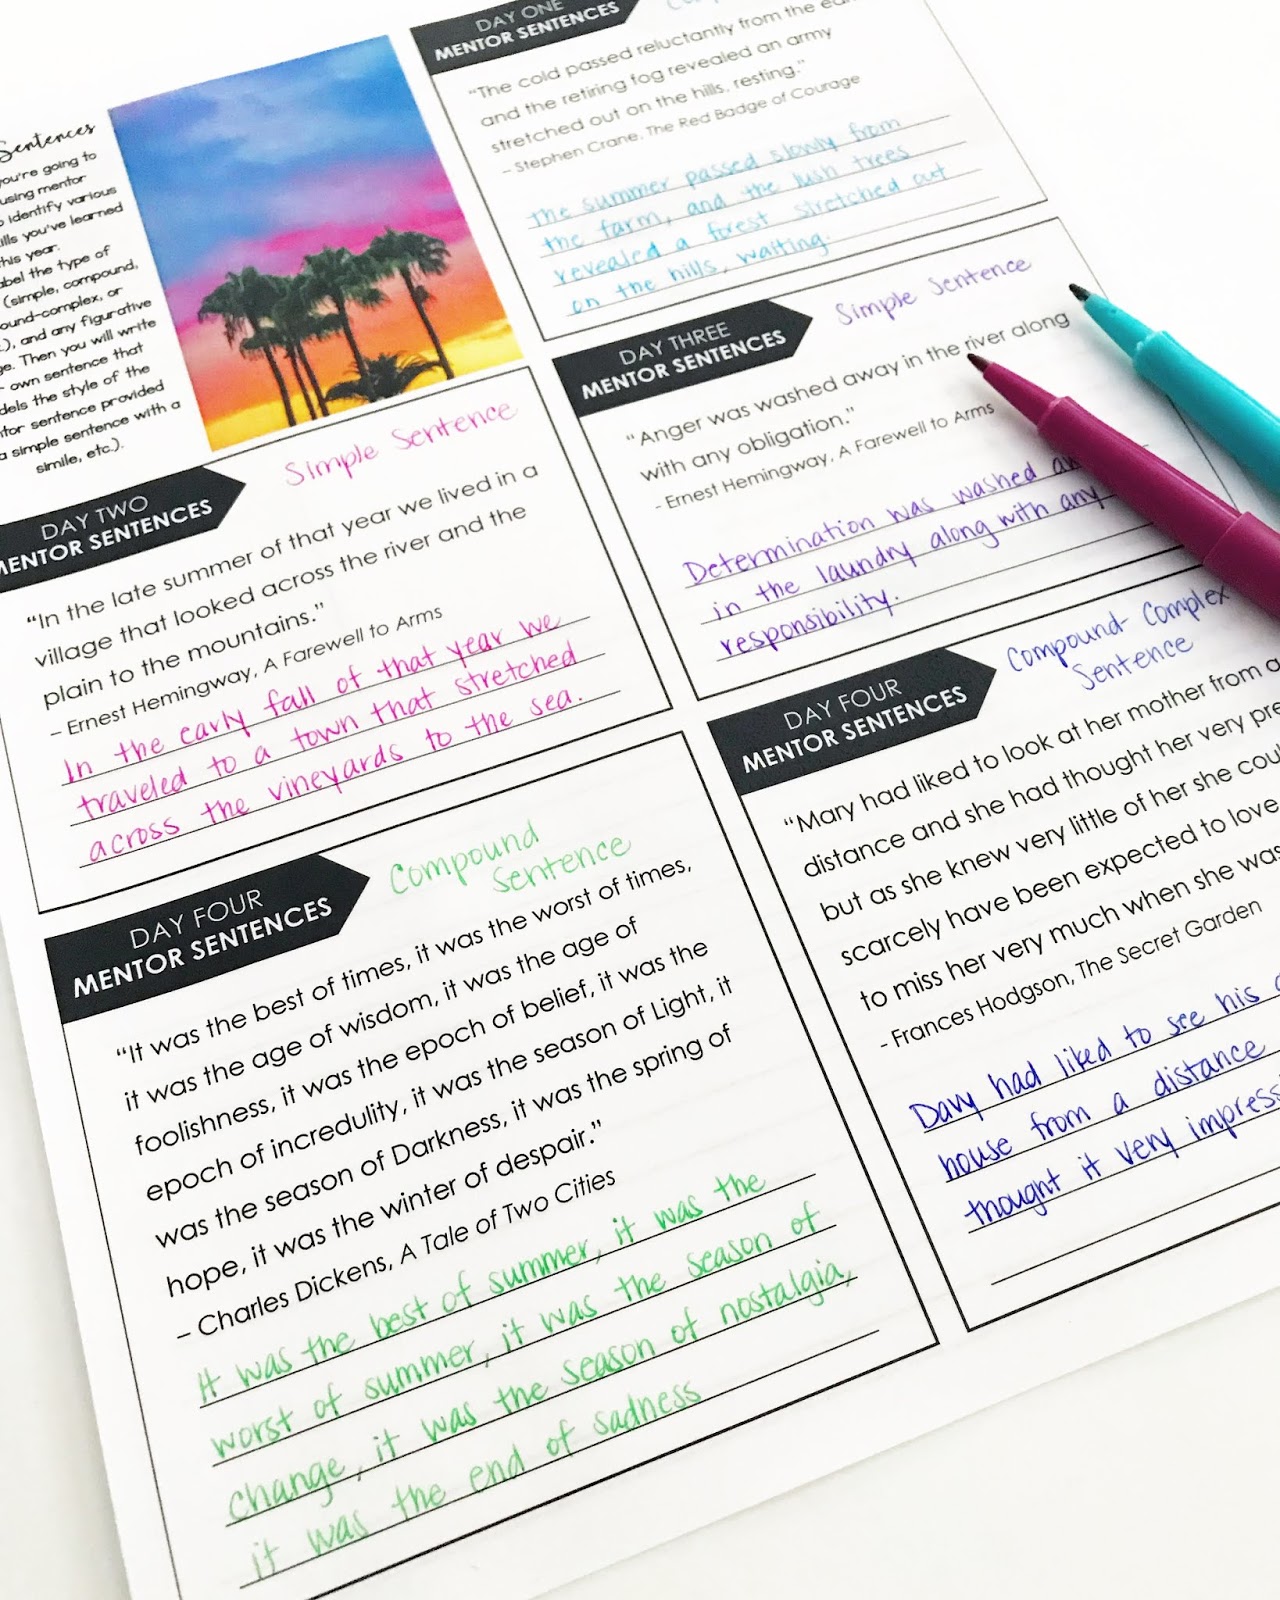 Sentences
you're going to
using mentor
identify various
skills you've learned
this year.
label the type of
(simple, compound,
compound-complex, or
), and any figurative
Then you will write
own sentence that
models the style of the
mentor sentence provided
a simple sentence with a
simile, etc.).
DAY ONE
MENTOR SENTENCES
"The cold passed reluctantly from the
and the retiring fog revealed an army
stretched out on the hills, resting."
- Stephen Crane, The Red Badge of Courage
The summer passed slowly from
the farm, and the lush trees
revealed a forest stretched out
on the hills, waiting.
DAY TWO
MENTOR SENTENCES
Simple Sentence
"In the late summer of that year we lived in a
village that looked across the river and the
plain to the mountains."
– Ernest Hemingway, A Farewell to Arms
In the early fall of that year we
traveled to a town that stretched
across the vineyards to the sea.
DAY THREE
MENTOR SENTENCES
Simple Sentence
"Anger was washed away in the river along
with any obligation."
- Ernest Hemingway, A Farewell to Arms
Determination was washed
in the laundry along with any
responsibility.
DAY FOUR
MENTOR SENTENCES
Compound
Sentence
"It was the best of times, it was the worst of times,
it was the age of wisdom, it was the age of
foolishness, it was the epoch of belief, it was the
epoch of incredulity, it was the season of Light, it
was the season of Darkness, it was the spring of
hope, it was the winter of despair."
– Charles Dickens, A Tale of Two Cities
It was the best of summer, it was the
worst of summer, it was the season of
change, it was the season of nostalgia,
it was the end of sadness
DAY FOUR
MENTOR SENTENCES
Compound-Complex
Sentence
"Mary had liked to look at her mother from a
distance and she had thought her very
but as she knew very little of her she
scarcely have been expected to love
to miss her very much when she was
- Frances Hodgson, The Secret Garden
Davy had liked to see his
house from a distance
thought it very